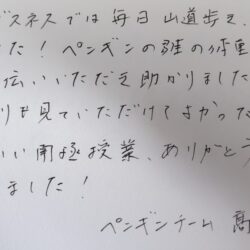 ズスネスでは毎日山道歩き
た!ペンギンの雛の体重
伝いいただき助かりました
りも見ていただけてよかった
いい南極授業、ありがとう
ました!
ペンギンチーム 高